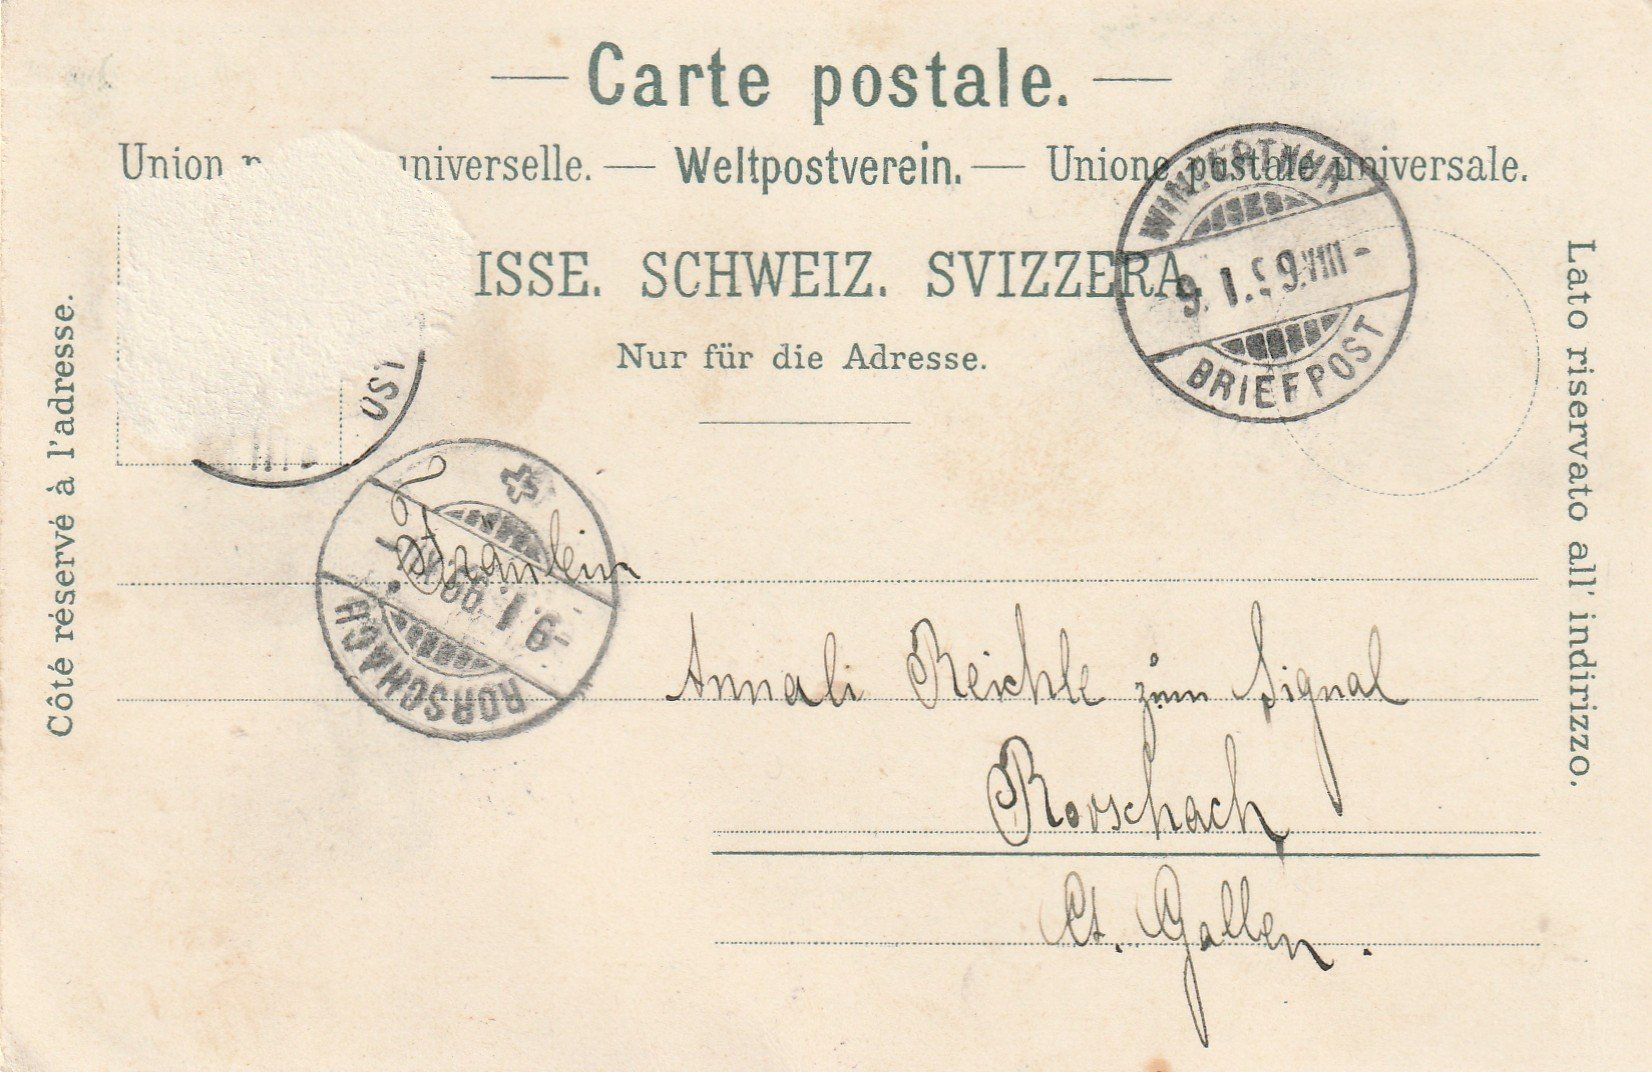 — Carte postale. —
Union universelle. — Weltpostverein. — Unione postale universale.
ISSE. SCHWEIZ. SVIZZERA.
Nur für die Adresse.
Côté réservé à l'adresse.
Lato riservato all' indirizzo.
WINTERTHUR
9. I. 99. VIII -
BRIEFPOST
RORSCHACH
-9. I. 99.
Fräulein
Annali Reichle zum Signal
Rorschach
Ct. Gallen.